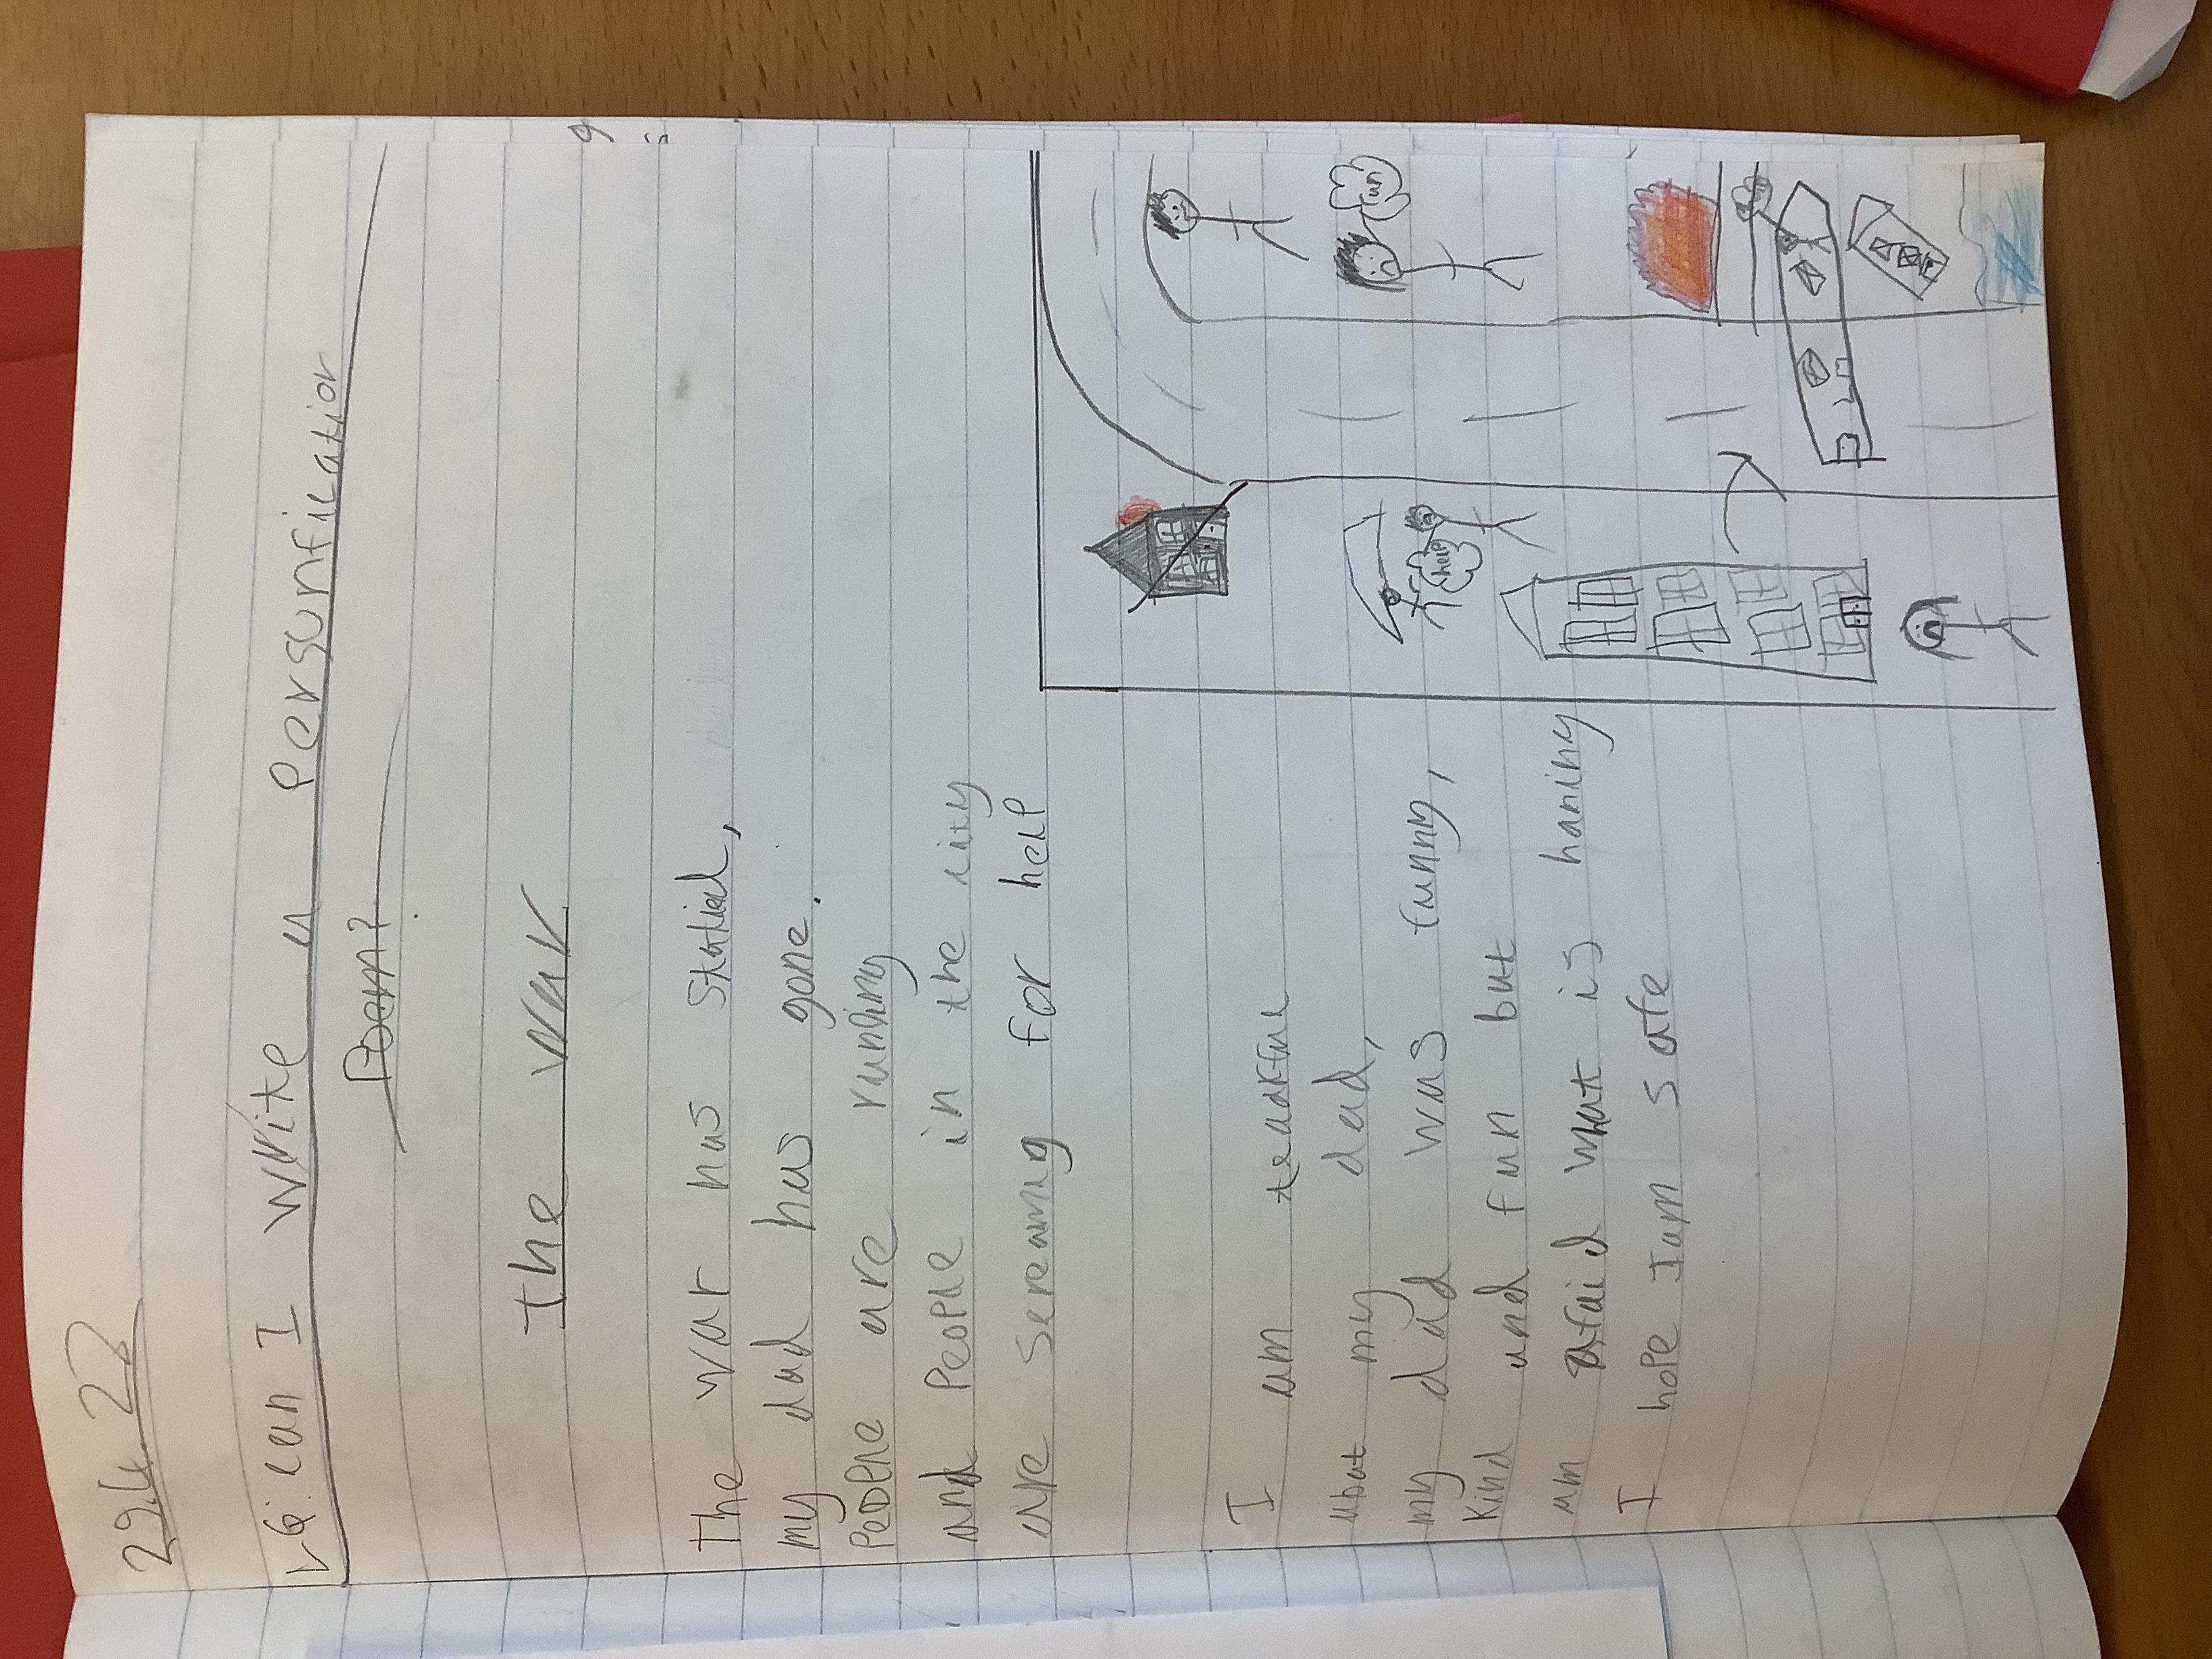 29.4.22
LQ: can I write a personfication
Poem?
The War
The war has statied,
my dad has gone.
People are running
and People in the city
are screaming for help
I am teadrfull
about my dad,
my dad was funny,
kind and fun but
am afraid what is haning
I hope I am safe
help